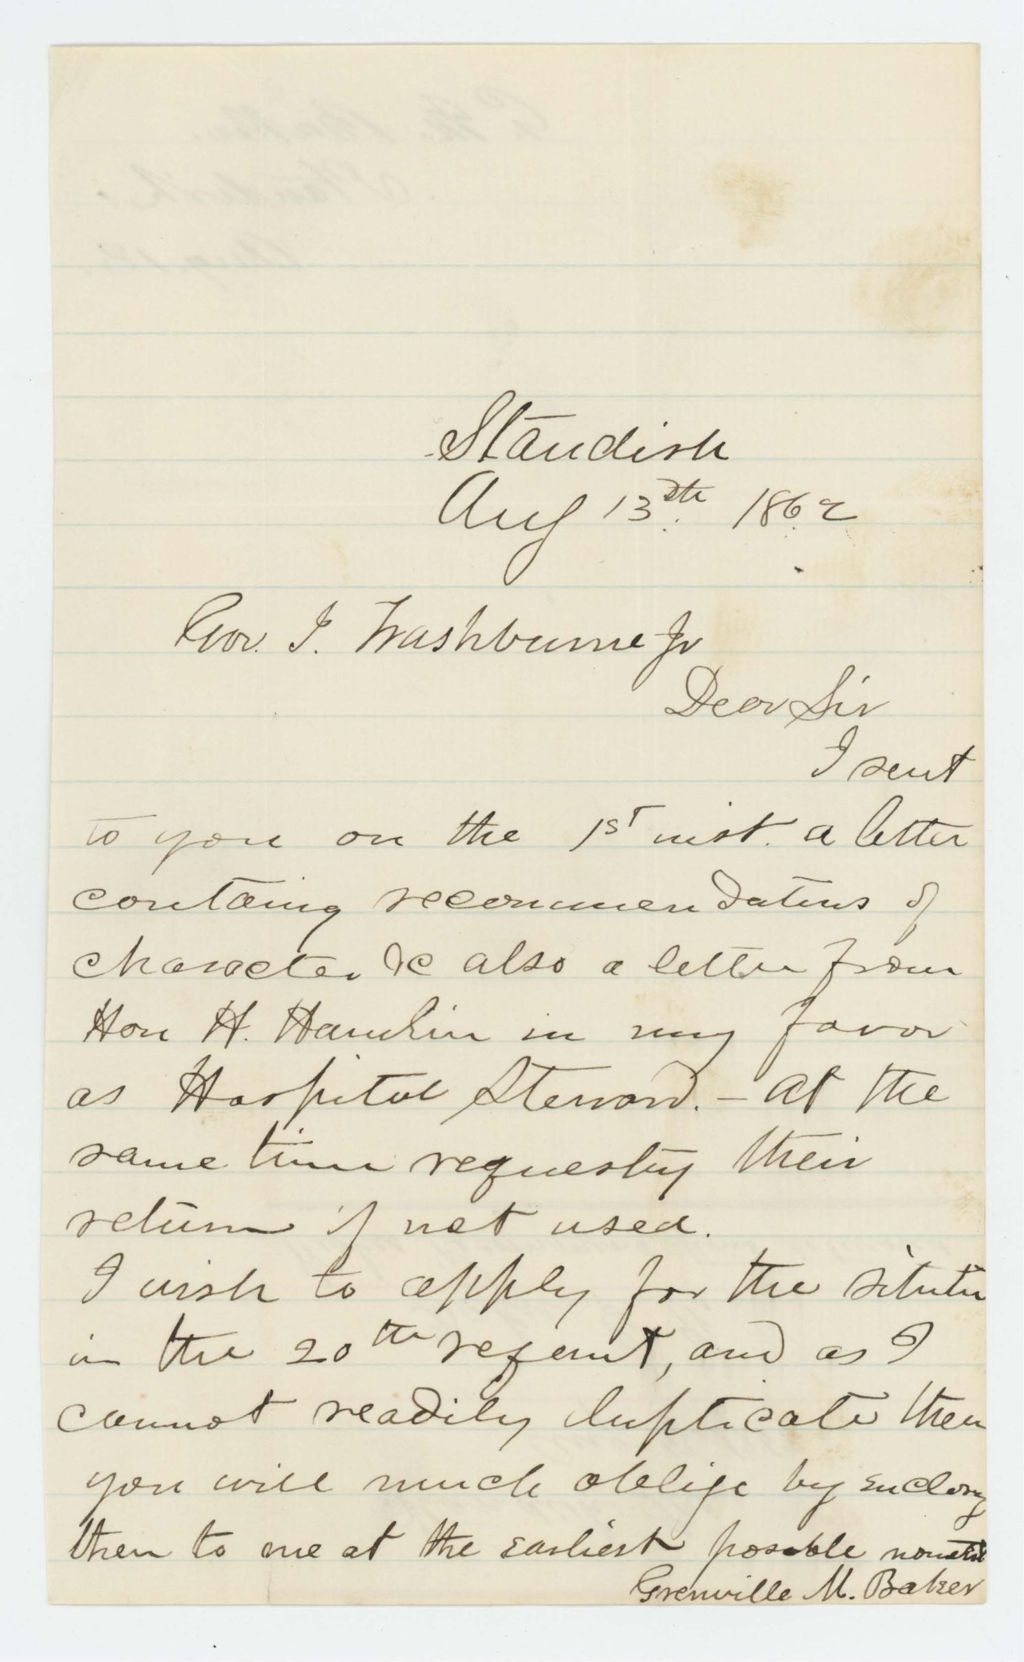 Standish
Aug 13th. 1862
Gov. I. Washburne Jr
Dear Sir
I sent
to you on the 1st inst. a letter
containg recommendations of
character &c also a letter from
Hon H. Hamlin in my favor
as Hospital Steward. - at the
same time requestig their
return if not used.
I wish to apply for the
in the 20th regemt, and as I
cannot readily duplicate them
you will much oblige by
them to me at the earliest possble
Grenville M. Baker